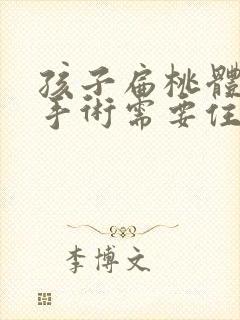 孩子扁桃體
手術需要住
李博文